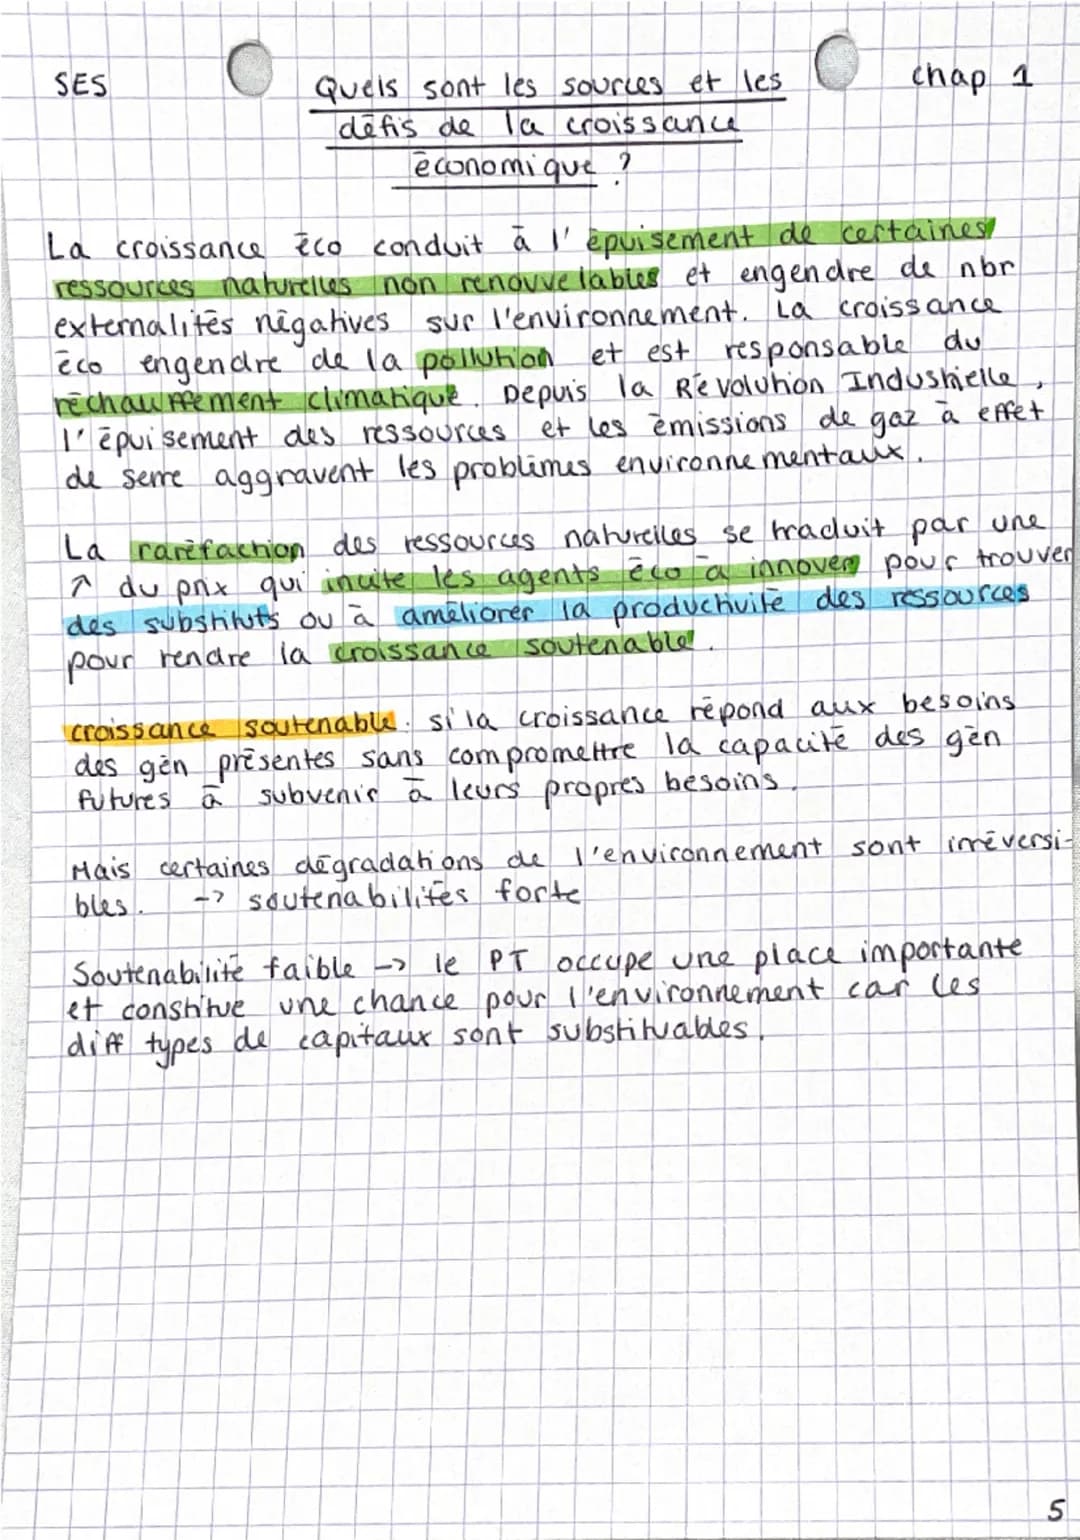 SES
Quels sont les sources et les
chap 1
défis de la croissance
économique ?
La croissance éco conduit à l'épuisement de certaines
ressources naturelles non renouvelables et engendre de nbr
externalités négatives sur l'environnement. La croissance
éco engendre de la pollution et est responsable du
réchauffement climatique. Depuis la Révolution Industrielle,
l'épuisement des ressources et les émissions de gaz à effet
de serre aggravent les problèmes environnementaux.
La raréfaction des ressources naturelles se traduit par une
↗ du prix qui incite les agents éco à innover pour trouver
des substituts ou à améliorer la productivité des ressources
pour rendre la croissance soutenable.
croissance soutenable : si la croissance répond aux besoins
des gén présentes sans compromettre la capacité des gén
futures à subvenir à leurs propres besoins.
Mais certaines dégradations de l'environnement sont irréversi-
bles. -> soutenabilités forte
Soutenabilité faible -> le PT occupe une place importante
et constitue une chance pour l'environnement car les
diff types de capitaux sont substituables.
5